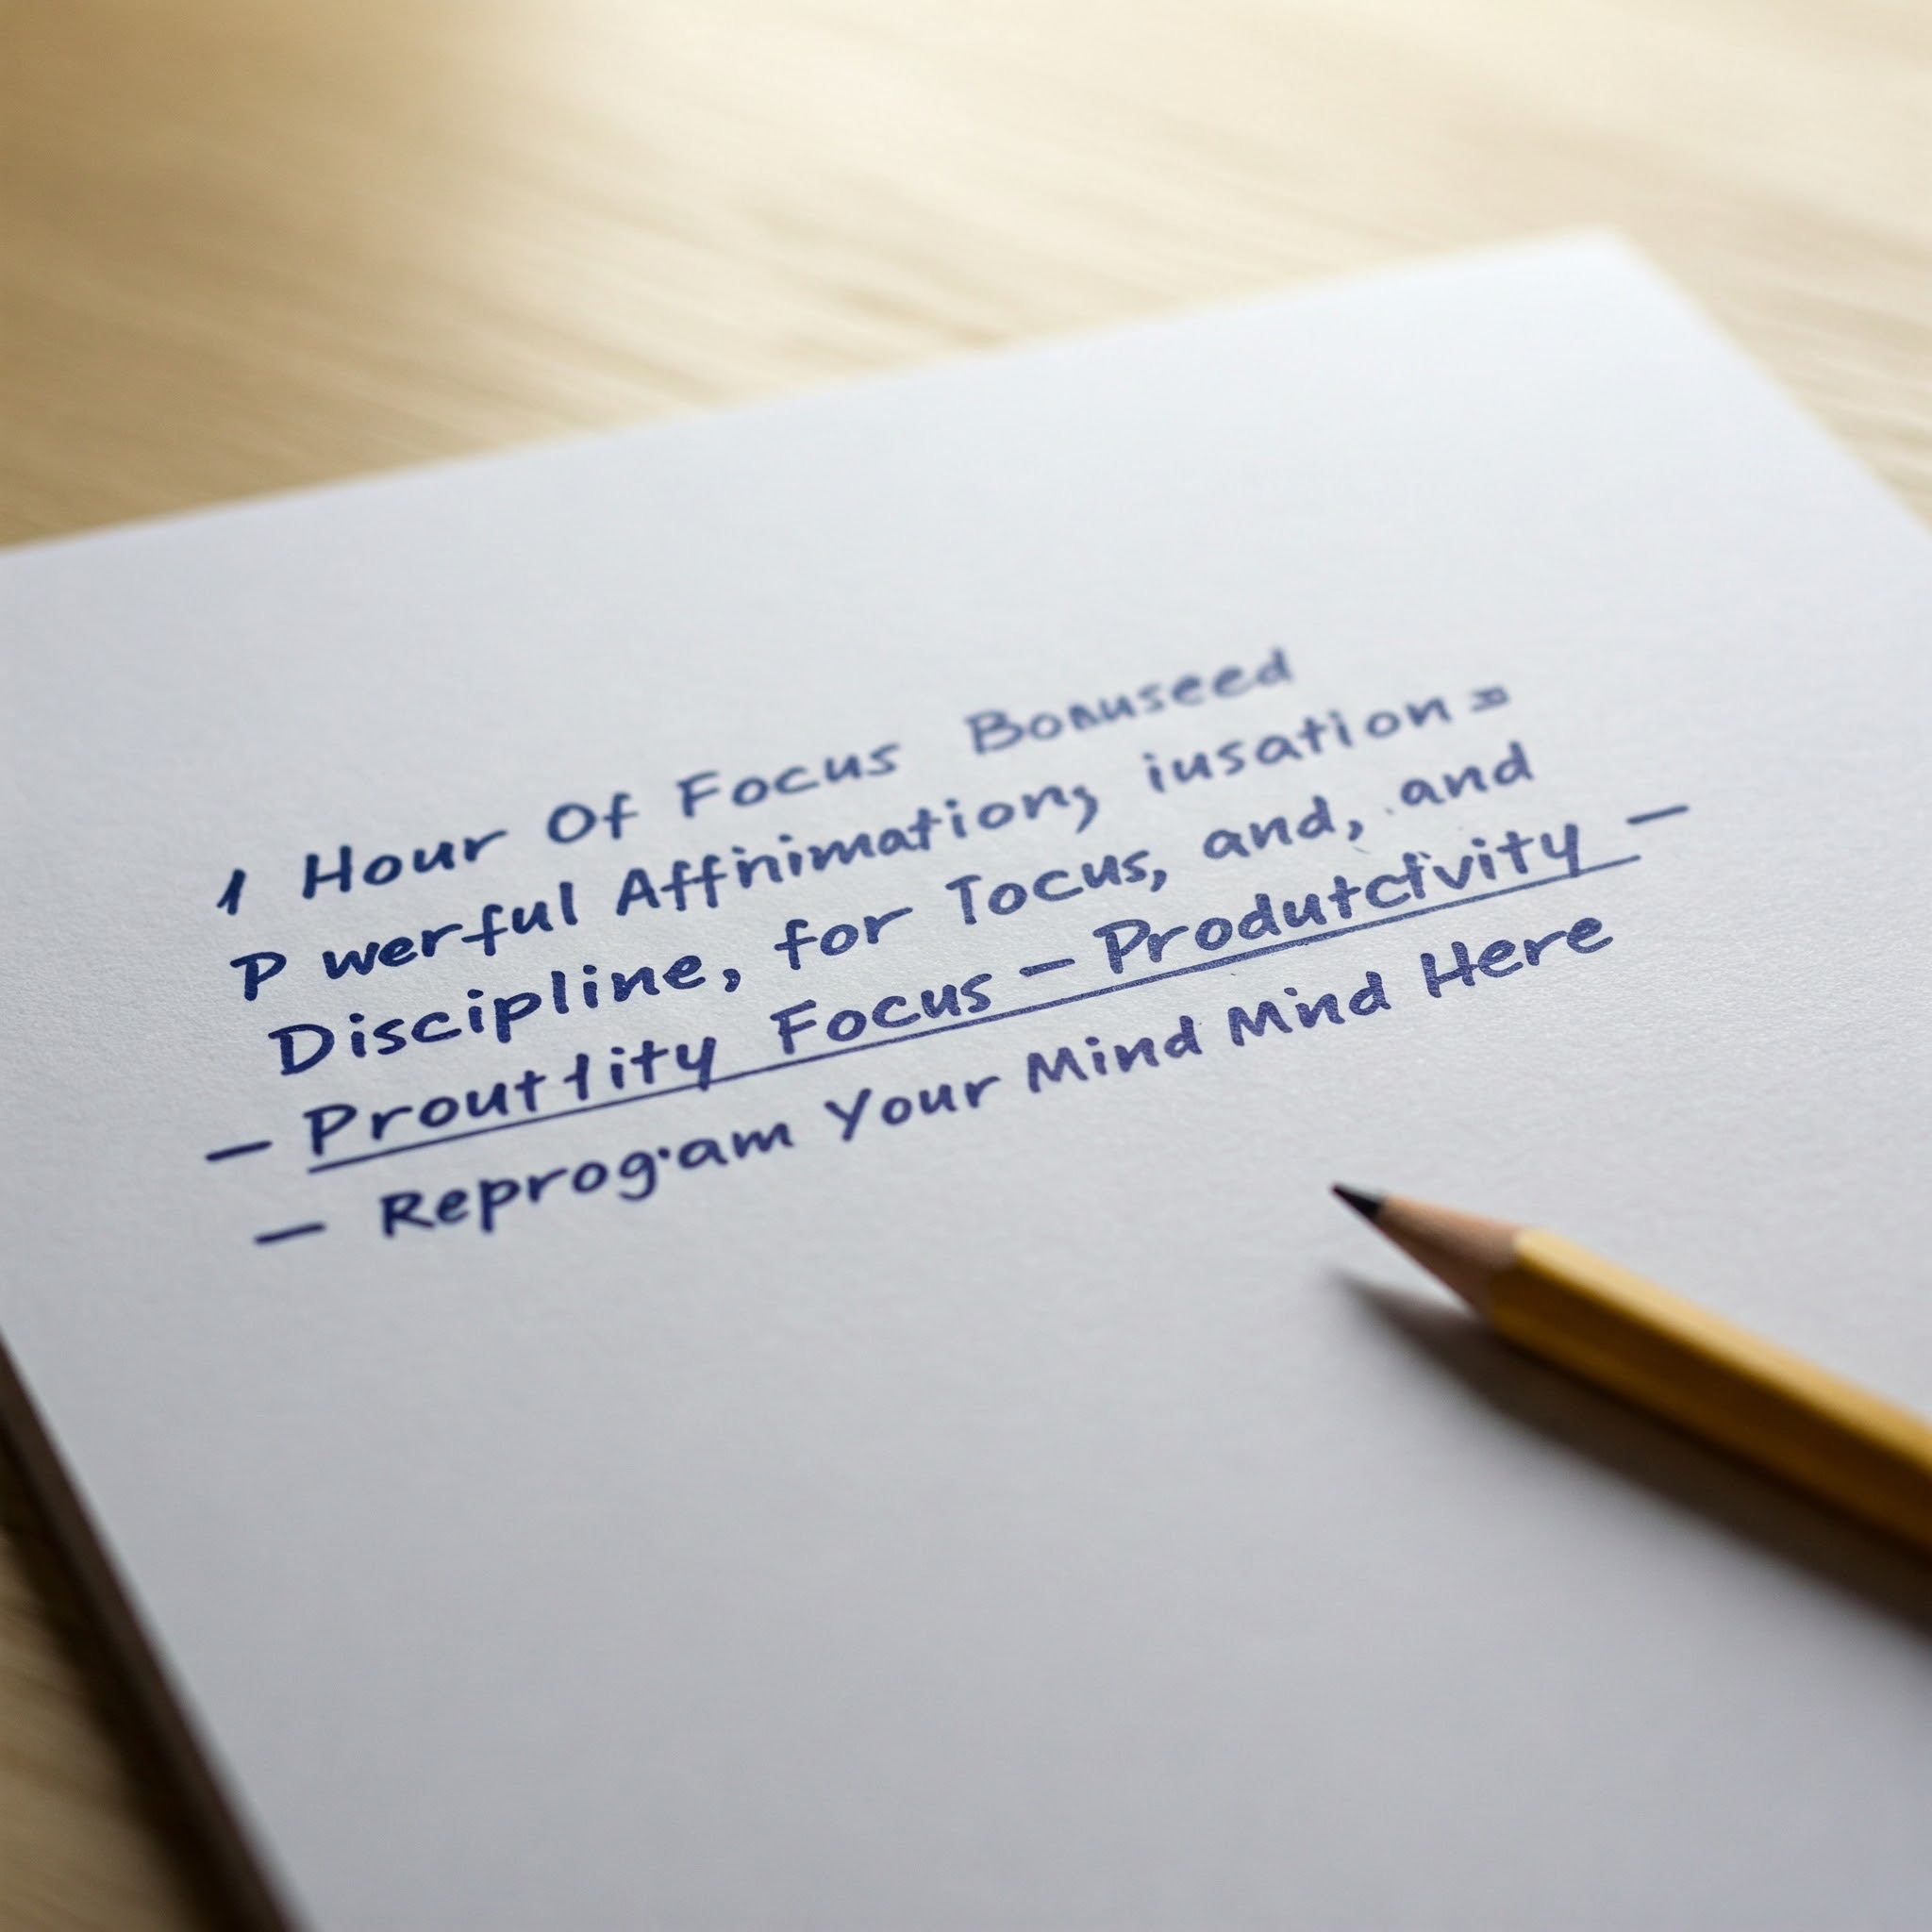 1 Hour Of Focus Bonuseed
P werful Affnimation, iusation =
Discipline, for Tocus, and, and
— Proutlity Focus — Produtctivity —
— Reprogram Your Mind Mind Here